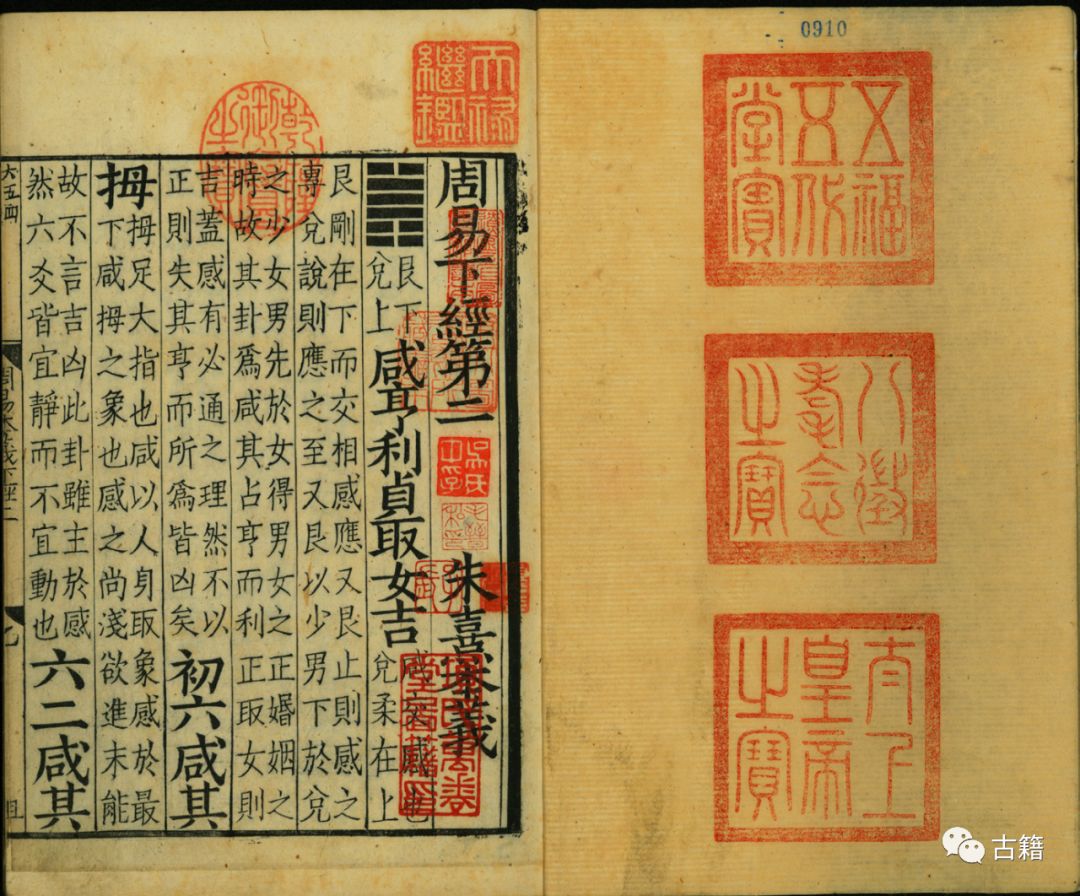 0910
五福五代堂寶
八徵耄念之寶
太上皇帝之寶
天祿繼鑑
乾隆御覽之寶
周易下經第二 朱熹本義
艮下
兌上
咸亨利貞取女吉
咸交感也
兌柔在上
艮剛在下而交相感應又艮止則感之
專兌說則應之至又艮以少男下於兌
之少女男先於女得男女之正婚姻之
時故其卦爲咸其占亨而利正取女則
吉蓋感有必通之理然不以
正則失其亨而所爲皆凶矣
初六咸其
拇
拇足大指也咸以人身取象感於最
下咸拇之象也感之尚淺欲進未能
故不言吉凶此卦雖主於感
然六爻皆宜靜而不宜動也
六二咸其
六五四
古籍